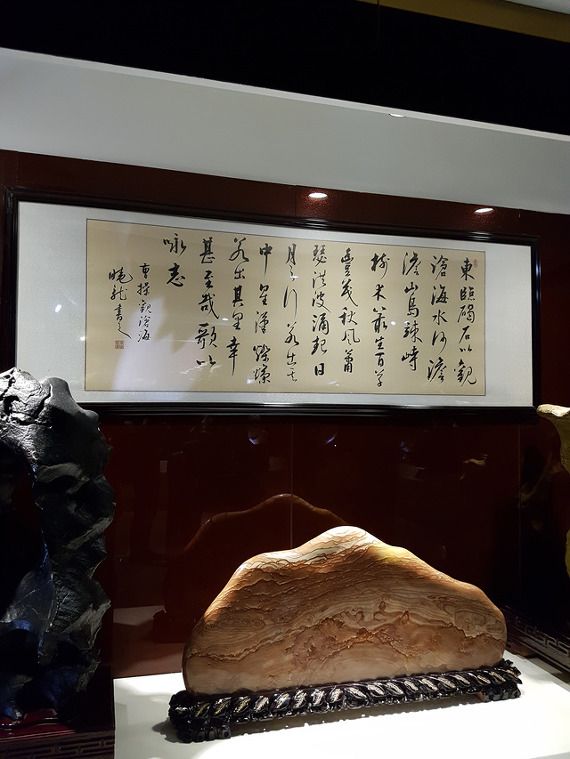 東臨碣石以觀
滄海水何澹
澹山島竦峙
樹木叢生百草
豊茂秋風蕭
瑟洪波涌起日
月之行若出其
中星漢燦爛
若出其里幸
甚至哉歌以
咏志
曹操觀滄海
曉龍書之